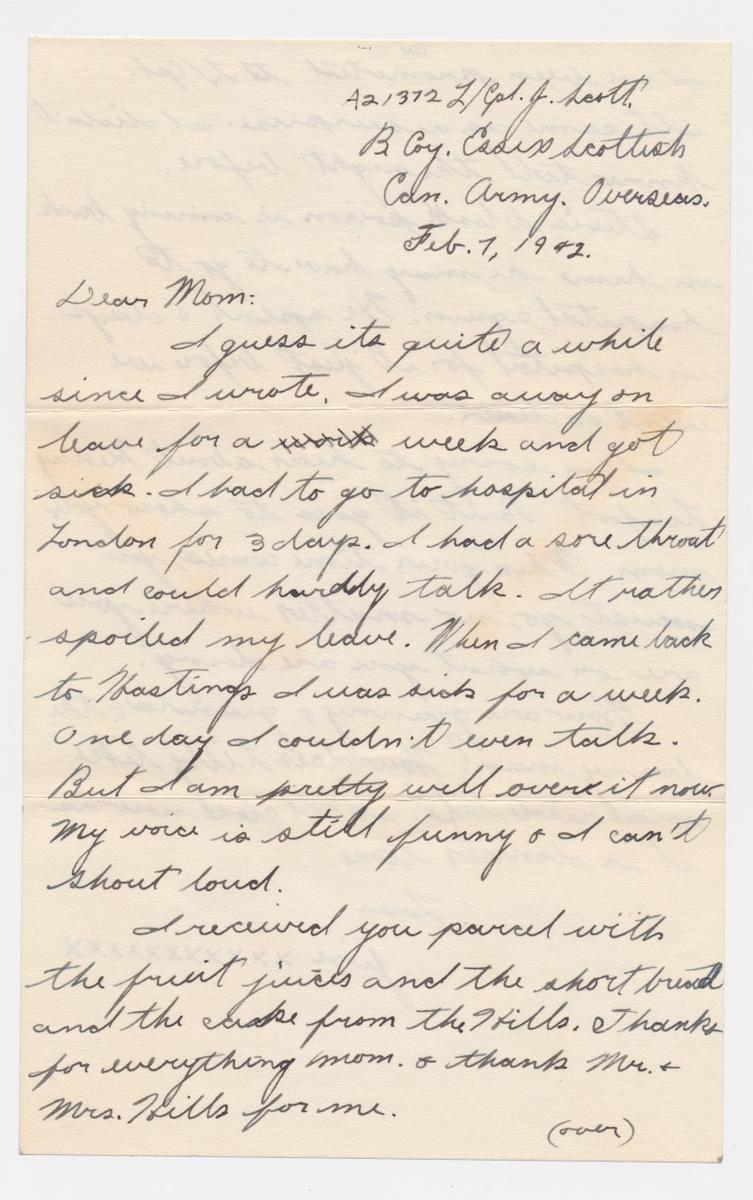 A21372 L/Cpl. J. Scott.
B Coy. Essex Scottish
Can. Army. Overseas.
Feb. 7, 1942.
Dear Mom:
I guess its quite a while
since I wrote. I was away on
leave for a week and got
sick. I had to go to hospital in
London for 3 days. I had a sore throat
and could hardly talk. It rather
spoiled my leave. When I came back
to Hastings I was sick for a week.
One day I couldn't even talk.
But I am pretty well over it now.
My voice is still funny & I can't
shout loud.
I received you parcel with
the fruit juices and the short bread
and the cake from the Hills. Thanks
for everything mom. & thank Mr. &
Mrs. Hills for me.
(over)